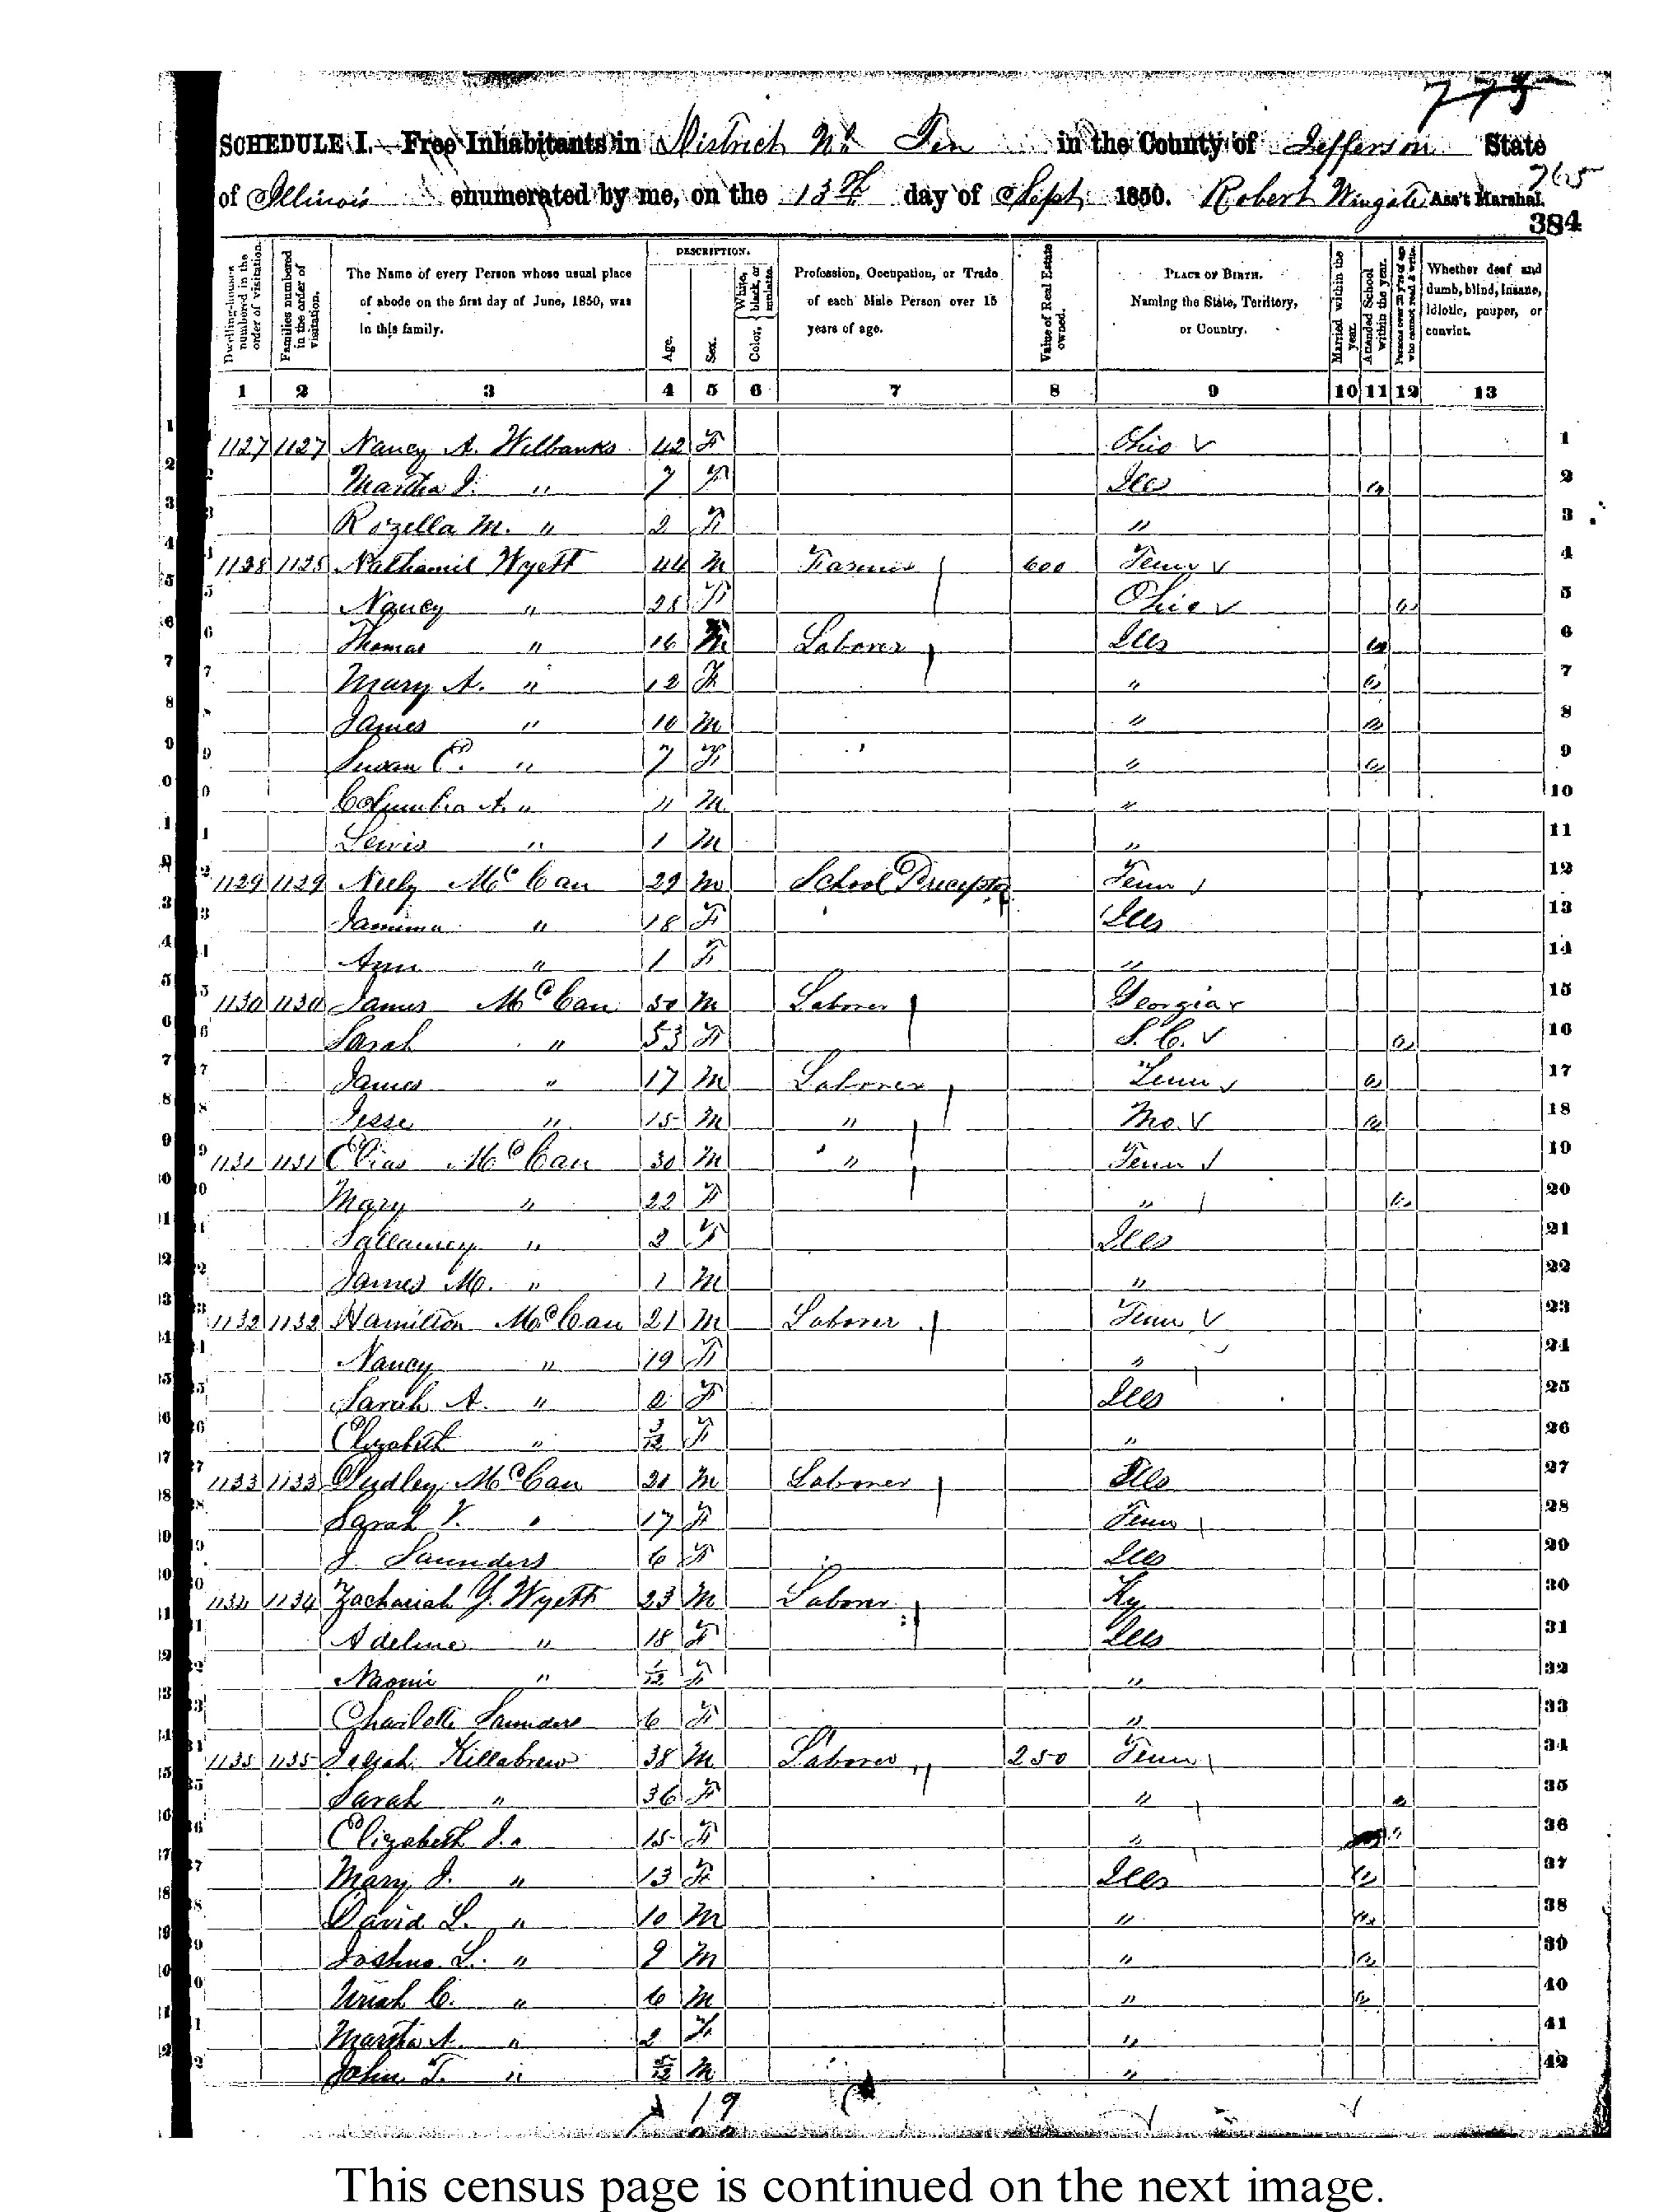 775
SCHEDULE I.—Free Inhabitants in District No. Ten in the County of Jefferson State
765
of Illinois enumerated by me, on the 13th day of Sept. 1850. Robert Wingate Ass't Marshal.
384
Dwelling-houses numbered in the order of visitation.
Families numbered in the order of visitation.
The Name of every Person whose usual place of abode on the first day of June, 1850, was in this family.
DESCRIPTION.
Age.
Sex.
Color, { White, black, or mulatto.
Profession, Occupation, or Trade of each Male Person over 15 years of age.
Value of Real Estate owned.
PLACE OF BIRTH. Naming the State, Territory, or Country.
Married within the year.
Attended School within the year.
Persons over 20 y'rs of age who cannot read & write.
Whether deaf and dumb, blind, insane, idiotic, pauper, or convict.
1 2 3 4 5 6 7 8 9 10 11 12 13
1 1127 1127 Nancy A. Welbanks 42 F Ohio 1
2 Martha J. " 7 F Ills 2
3 Rozella M. " 2 F " 3
4 1128 1128 Nathaniel Wyett 44 M Farmer 600 Tenn 4
5 Nancy " 28 F Ohio 5
6 Thomas " 16 M Laborer Ills 6
7 Mary A. " 12 F " 7
8 James " 10 M " 8
9 Susan C. " 7 F " 9
10 Columbia A. " " M " 10
11 Lewis " 1 M " 11
12 1129 1129 Neely McCan 29 M School Precepter Tenn 12
13 Jamima " 18 F Ills 13
14 Ann " 1 F " 14
15 1130 1130 James McCan 50 M Laborer Georgia 15
16 Sarah " 53 F S. C. 16
17 James " 17 M Laborer Tenn 17
18 Jesse " 15 M " Mo. 18
19 1131 1131 Elias McCan 30 M " Tenn 19
20 Mary " 22 F " 20
21 " F Ills 21
22 James M. " 1 M " 22
23 1132 1132 Hamilton McCan 21 M Laborer Tenn 23
24 Nancy " 19 F " 24
25 Sarah A. " 2 F Ills 25
26 Elizabeth " 3/12 F " 26
27 1133 1133 Dudley McCan 21 M Laborer Ills 27
28 Sarah V. " 17 F Tenn 28
29 J. Saunders 6 F Ills 29
30 1134 1134 Zachariah Y. Wyett 23 M Laborer Ky 30
31 Adeline " 18 F Ills 31
32 Naomi " 1/12 F " 32
33 Charlotte Saunders 6 F " 33
34 1135 1135 Josiah Killabrew 38 M Laborer 250 Tenn 34
35 Sarah " 36 F " 35
36 Elizabeth J. " 15 F " 36
37 Mary J. " 13 F Ills 37
38 David L. " 10 M " 38
39 Joshua L. " 9 M " 39
40 Uriah C. " 6 M " 40
41 Martha A. " 2 F " 41
42 John T. " 5/12 M " 42
19
This census page is continued on the next image.